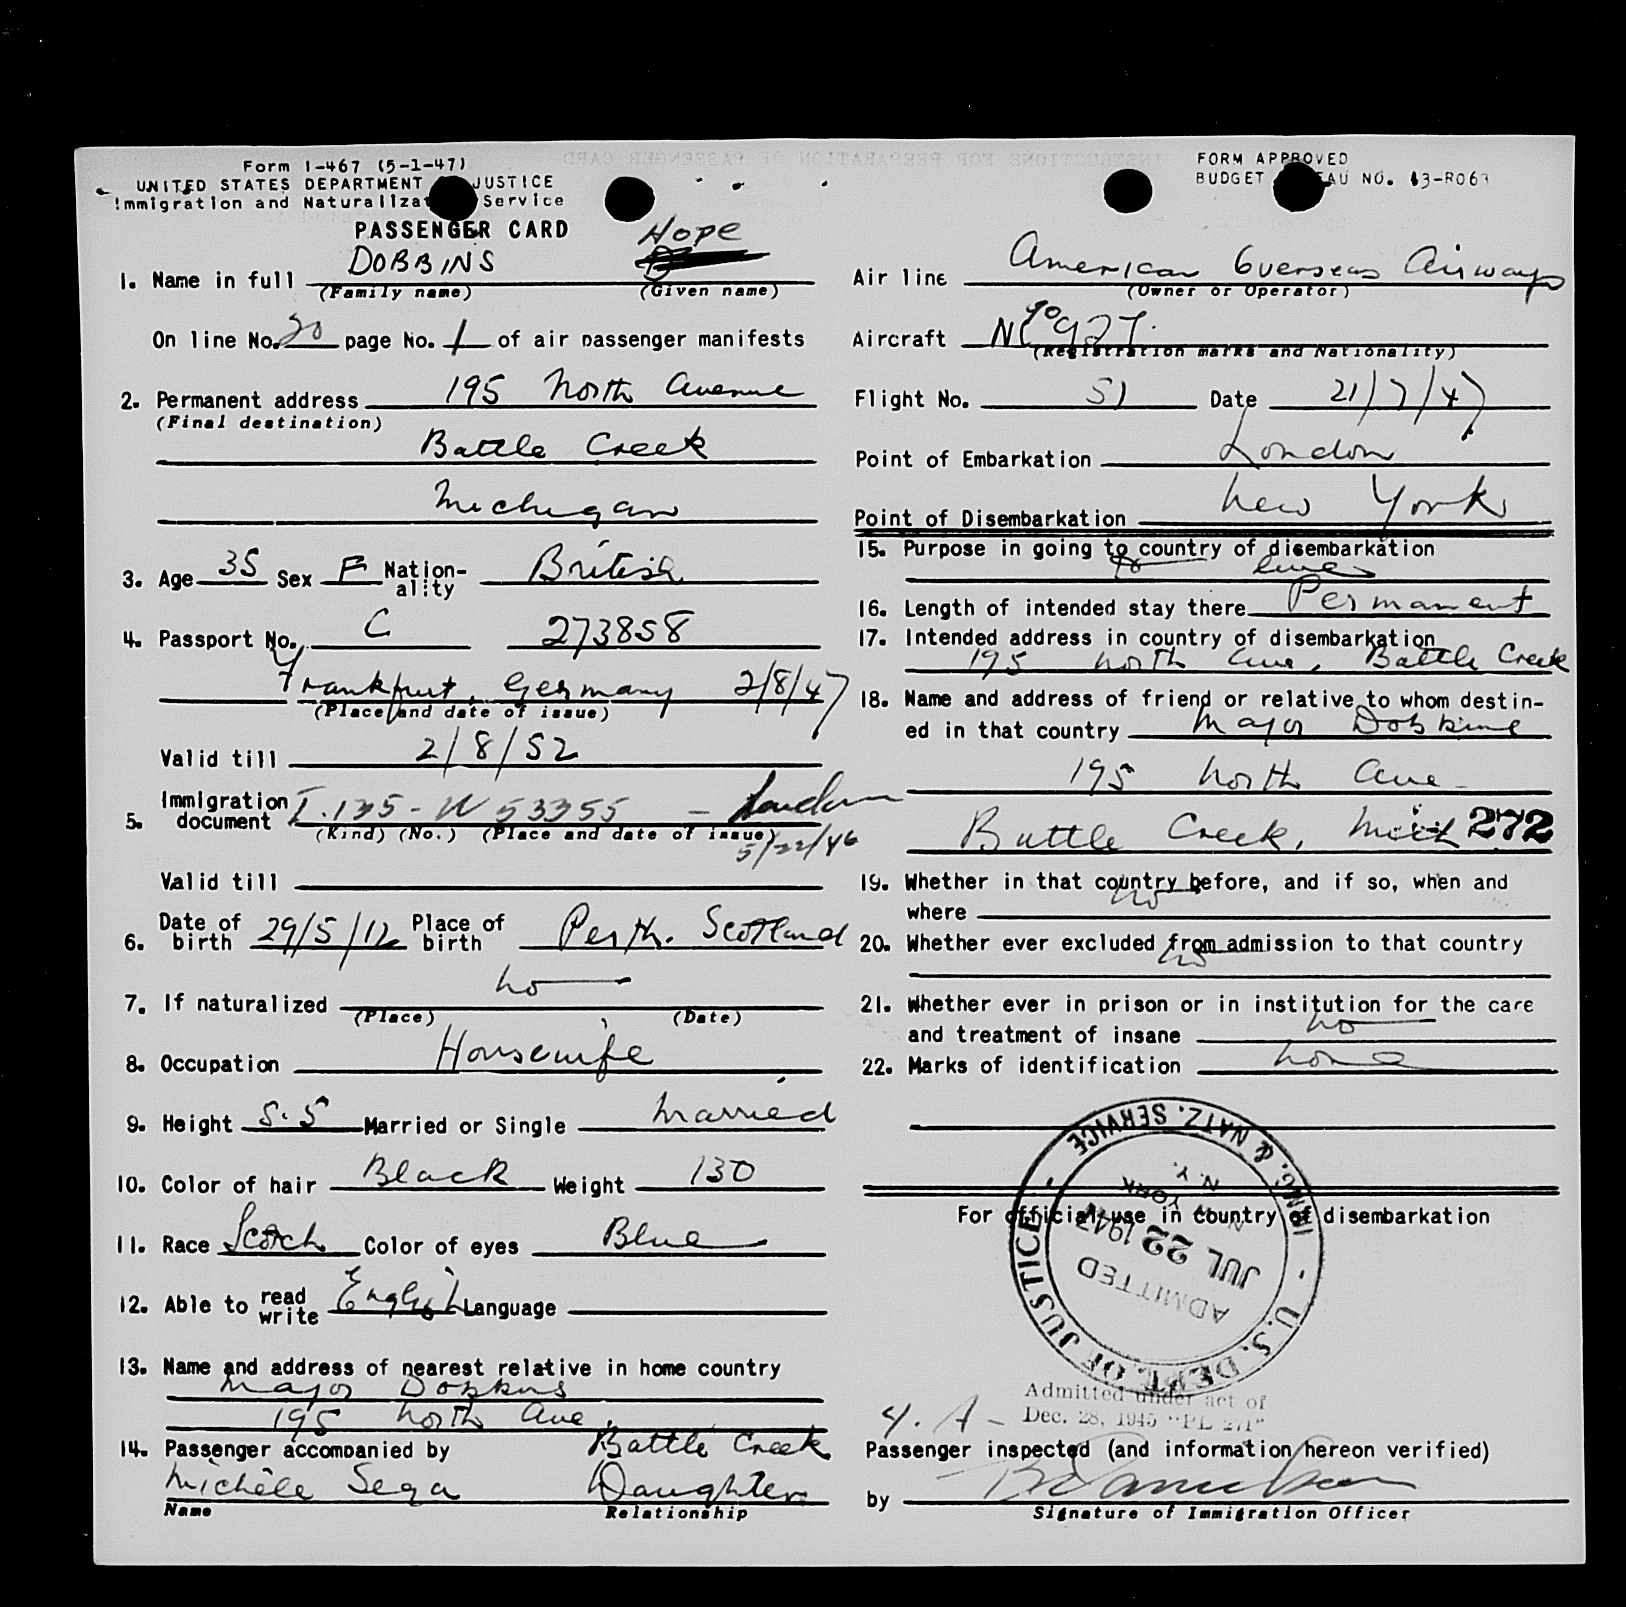 Form I-467 (5-1-47)
UNITED STATES DEPARTMENT JUSTICE
Immigration and Naturalizat Service
PASSENGER CARD
FORM APPROVED
BUDGET EAU NO. 43-R063
Hope
DOBBINS
1. Name in full
(Family name) (Given name)
On line No. 20 page No. 1 of air passenger manifests
2. Permanent address 195 North Avenue
(Final destination)
Battle Creek
Michigan
3. Age 35 Sex F Nation-ality British
4. Passport No. C 273858
Frankfurt, Germany 2/8/47
(Place and date of issue)
Valid till 2/8/52
5. Immigration document I.135 - N 53355 - London
(Kind) (No.) (Place and date of issue)
5/22/46
Valid till
6. Date of birth 29/5/12 Place of birth Perth. Scotland
7. If naturalized no
(Place) (Date)
8. Occupation Housewife
9. Height 5.5 Married or Single Married
10. Color of hair Black Weight 130
11. Race Scotch Color of eyes Blue
12. Able to read write English Language
13. Name and address of nearest relative in home country
Major Dobbins
195 North Ave,
Battle Creek
14. Passenger accompanied by
Michèle Sega Daughter
Name Relationship
Air line American Overseas Airways
(Owner or Operator)
Aircraft NC90927.
(Registration marks and Nationality)
Flight No. 51 Date 21/7/47
Point of Embarkation London
Point of Disembarkation New York
15. Purpose in going to country of disembarkation
to live
16. Length of intended stay there Permanent
17. Intended address in country of disembarkation
195 North Ave, Battle Creek
18. Name and address of friend or relative to whom destin-
ed in that country Major Dobbins
195 North Ave
Battle Creek, Mich 272
19. Whether in that country before, and if so, when and
where no
20. Whether ever excluded from admission to that country
no
21. Whether ever in prison or in institution for the care
and treatment of insane no
22. Marks of identification none
For official use in country of disembarkation
U.S. DEPT. OF JUSTICE - IMMIG. & NATZ. SERVICE -
ADMITTED
JUL 22 1947
NEW YORK
N.Y.
Admitted under act of
4. A - Dec. 28, 1945 "PL 271"
Passenger inspected (and information hereon verified)
by
Signature of Immigration Officer